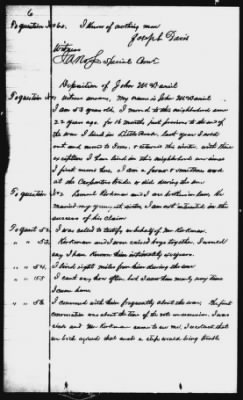 6
To question No 60. I know of nothing more
Joseph Davis
Witness
Special Comr
Deposition of John McDaniel
To question No 1 witness answers, My name is John McDaniel
I am 53 years old, I moved to this neighborhood over
22 years ago. for 16 months just previous to the end of
the war I lived in Little Rock, last year I sold
out and moved to Texas, & returned this winter, with these
exceptions I have lived in this neighborhood ever since
I first moved here. I am a farmer & sometimes work
at the Carpenters trade & did during the war
To question No 2 Kirkman and I are brothers in law, He
married my youngest sister, I am not interested in the
success of his claim
To Quest 52. I was called to testify on behalf of Mr. Kirkman.
" " 53. Kirkman and I were raised boys together, I would
say I have known him intimately 40 years.
" " 54. I lived eight miles from him during the war
" " 55. I cant say how often but I saw him nearly every time
I came home
" " 56 I conversed with him frequently about the war, The first
conversation was about the time of the vote on secession. I was
sick and Mr. Kirkman came to see me, I recollect that
we both agreed that such a step would bring